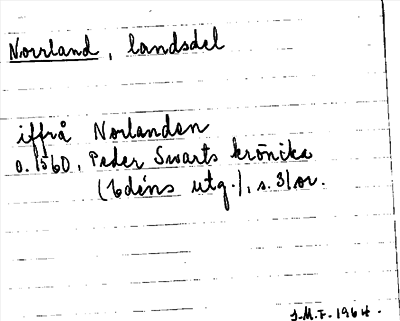 Norrland, landsdel
iffrå Norlanden
o. 1560, Peder Swarts krönika
(Edéns utg.), s. 31 or.
J.M.F. 1964.